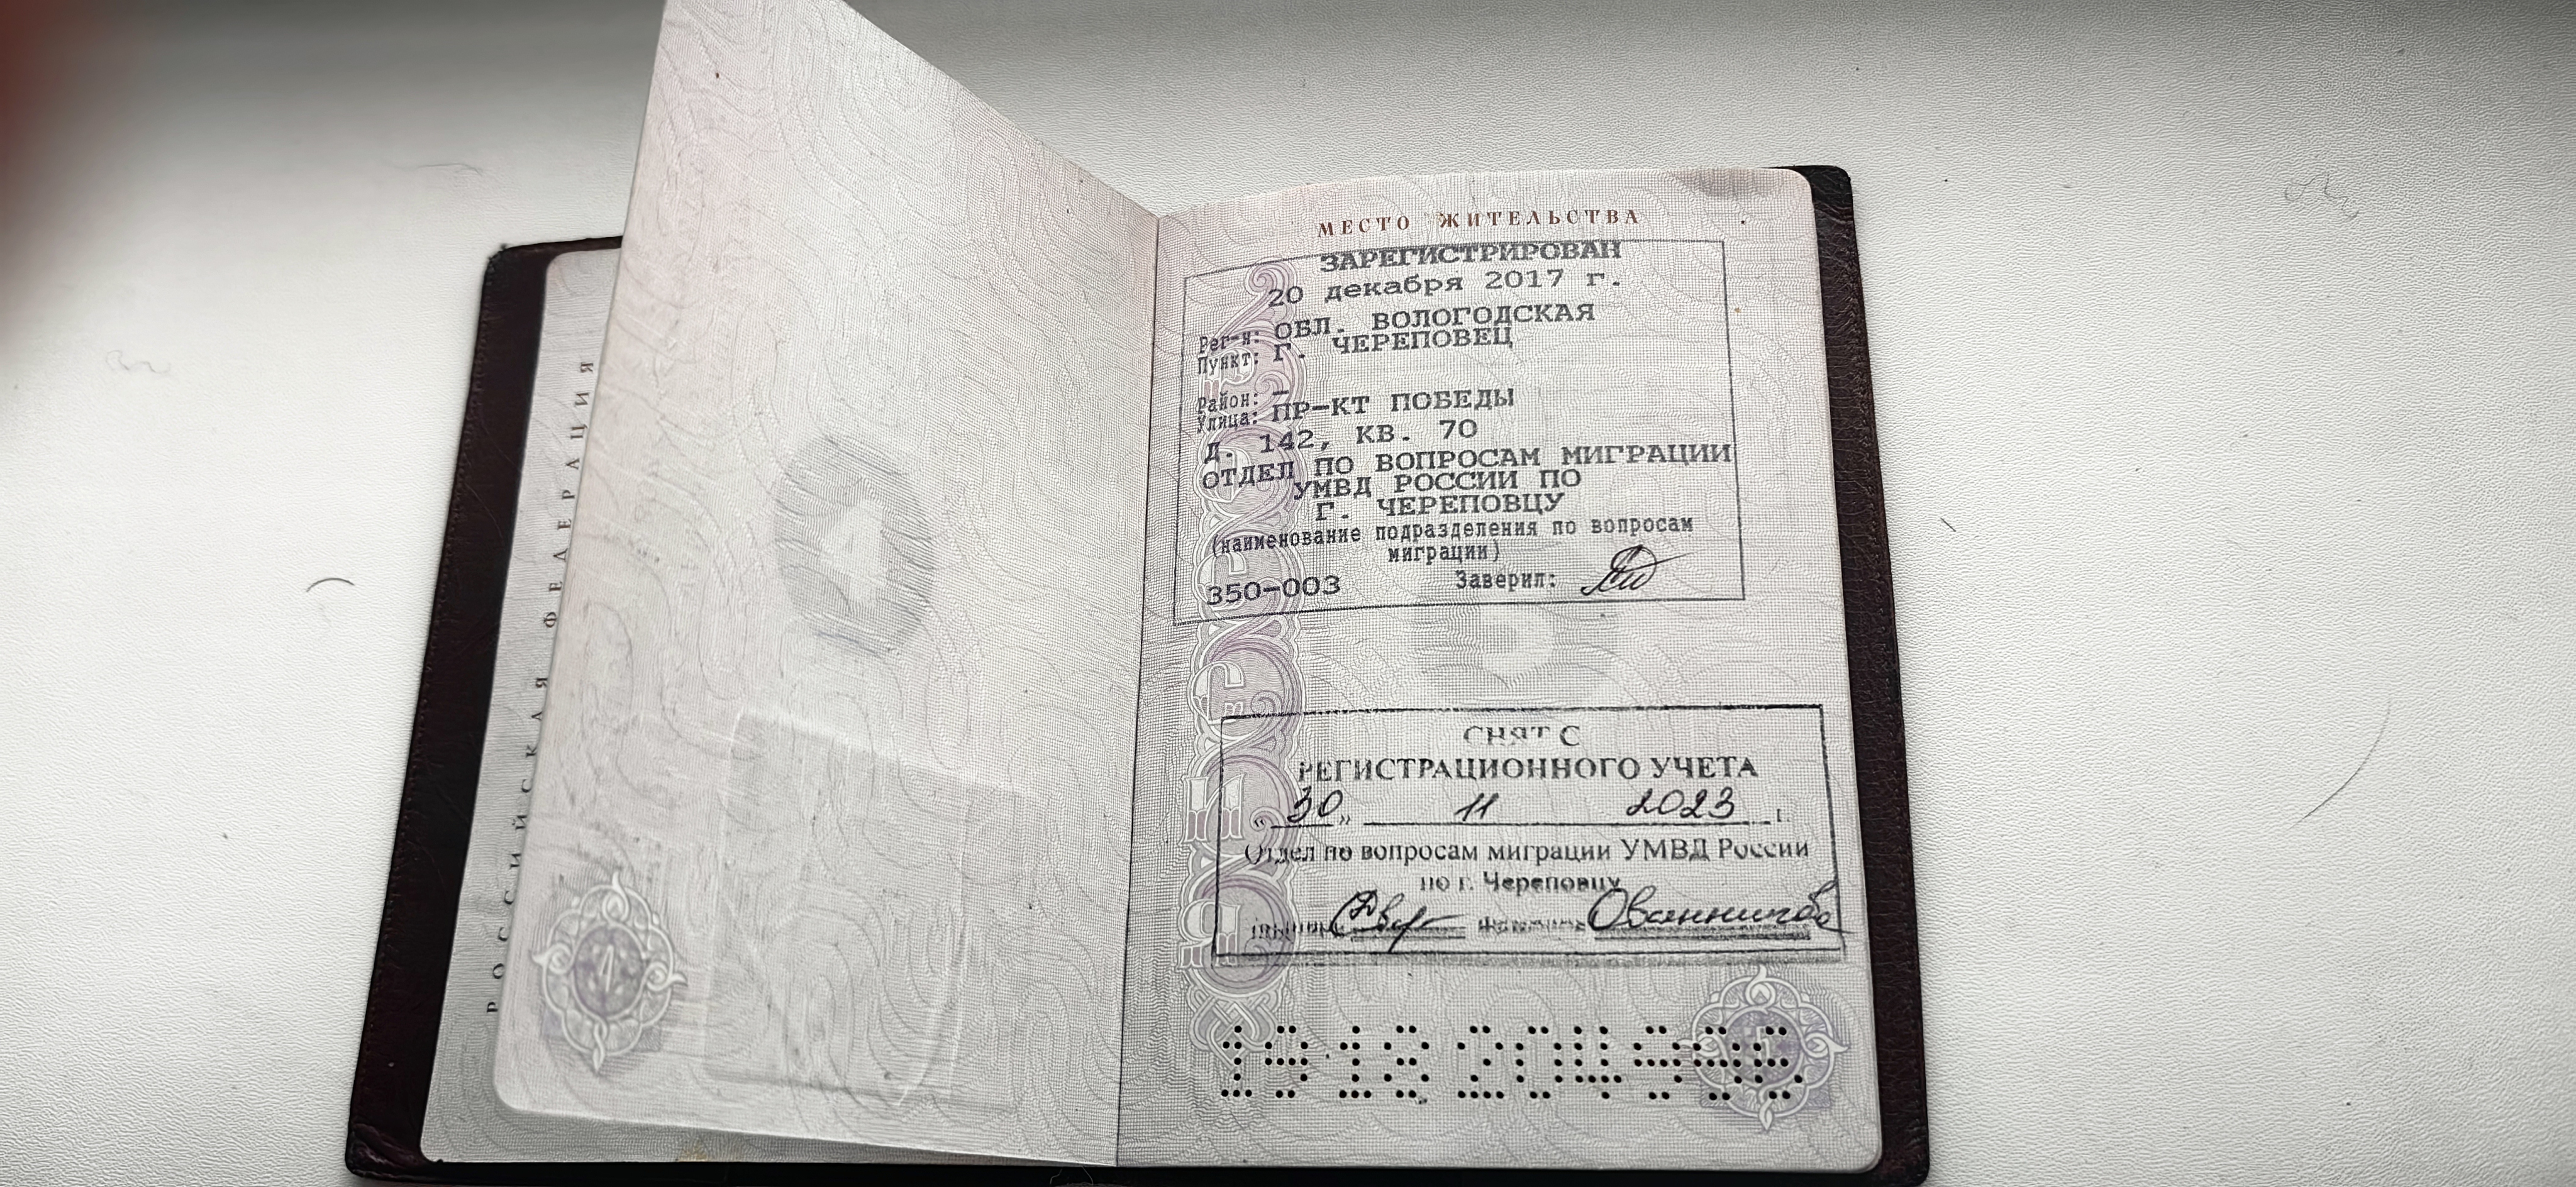 РОССИЙСКАЯ ФЕДЕРАЦИЯ
МЕСТО ЖИТЕЛЬСТВА
ЗАРЕГИСТРИРОВАН
20 декабря 2017 г.
Рег-н: ОБЛ. ВОЛОГОДСКАЯ
Пункт: Г. ЧЕРЕПОВЕЦ
Район: -
Улица: ПР-КТ ПОБЕДЫ
Д. 142, КВ. 70
ОТДЕЛ ПО ВОПРОСАМ МИГРАЦИИ
УМВД РОССИИ ПО
Г. ЧЕРЕПОВЦУ
(наименование подразделения по вопросам
миграции)
350-003 Заверил:
СНЯТ С
РЕГИСТРАЦИОННОГО УЧЕТА
«30» 11 2023 г.
Отдел по вопросам миграции УМВД России
по г. Череповцу
19 18 204995